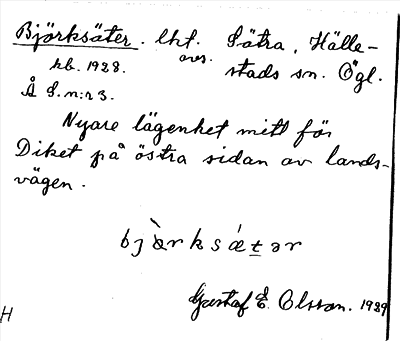 Björksäter. lht. Sätra, Hälle-
kb. 1928. avs. stads sn. Ögl.
Å S. n:r 3.
Nyare lägenhet mitt för
Diket på östra sidan av lands-
vägen.
bjàrksǽtər
Gustaf E. Olsson. 1929
H